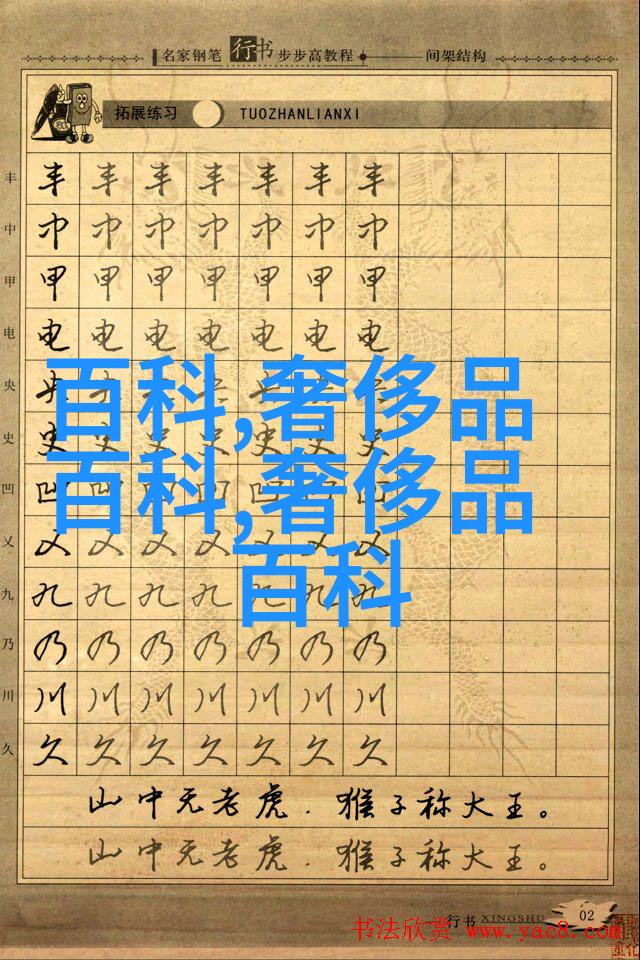 名家钢笔行书步步高教程 间架结构
拓展练习 TUOZHANLIANXI
丰 丰 丰 丰 丰 丰 丰 丰
中 中 中 中 中 中 中 中
甲 甲 甲 甲 甲 甲 甲 甲
电 电 电 电 电 电 电 电
央 央 央 央 央 央 央 央
百科,奢侈品
史 史 史 史 史 史 史 史
凹 凹 凹 凹 凹 凹 凹 凹
百科,奢侈品
乂 乂 乂 乂 乂 乂 乂 乂
九 九 九 九 九 九 九 九
百科
乃 乃 乃 乃 乃 乃 乃 乃
川 川 川 川 川 川 川 川
久 久 久 久 久 久 久 久
山中无老虎.猴子称大王。
山中无老虎.猴子称大王。
行书 XINGSHU 02
书法欣赏 www.yac8.com